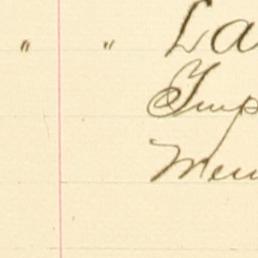 " " La
Imp
Mem